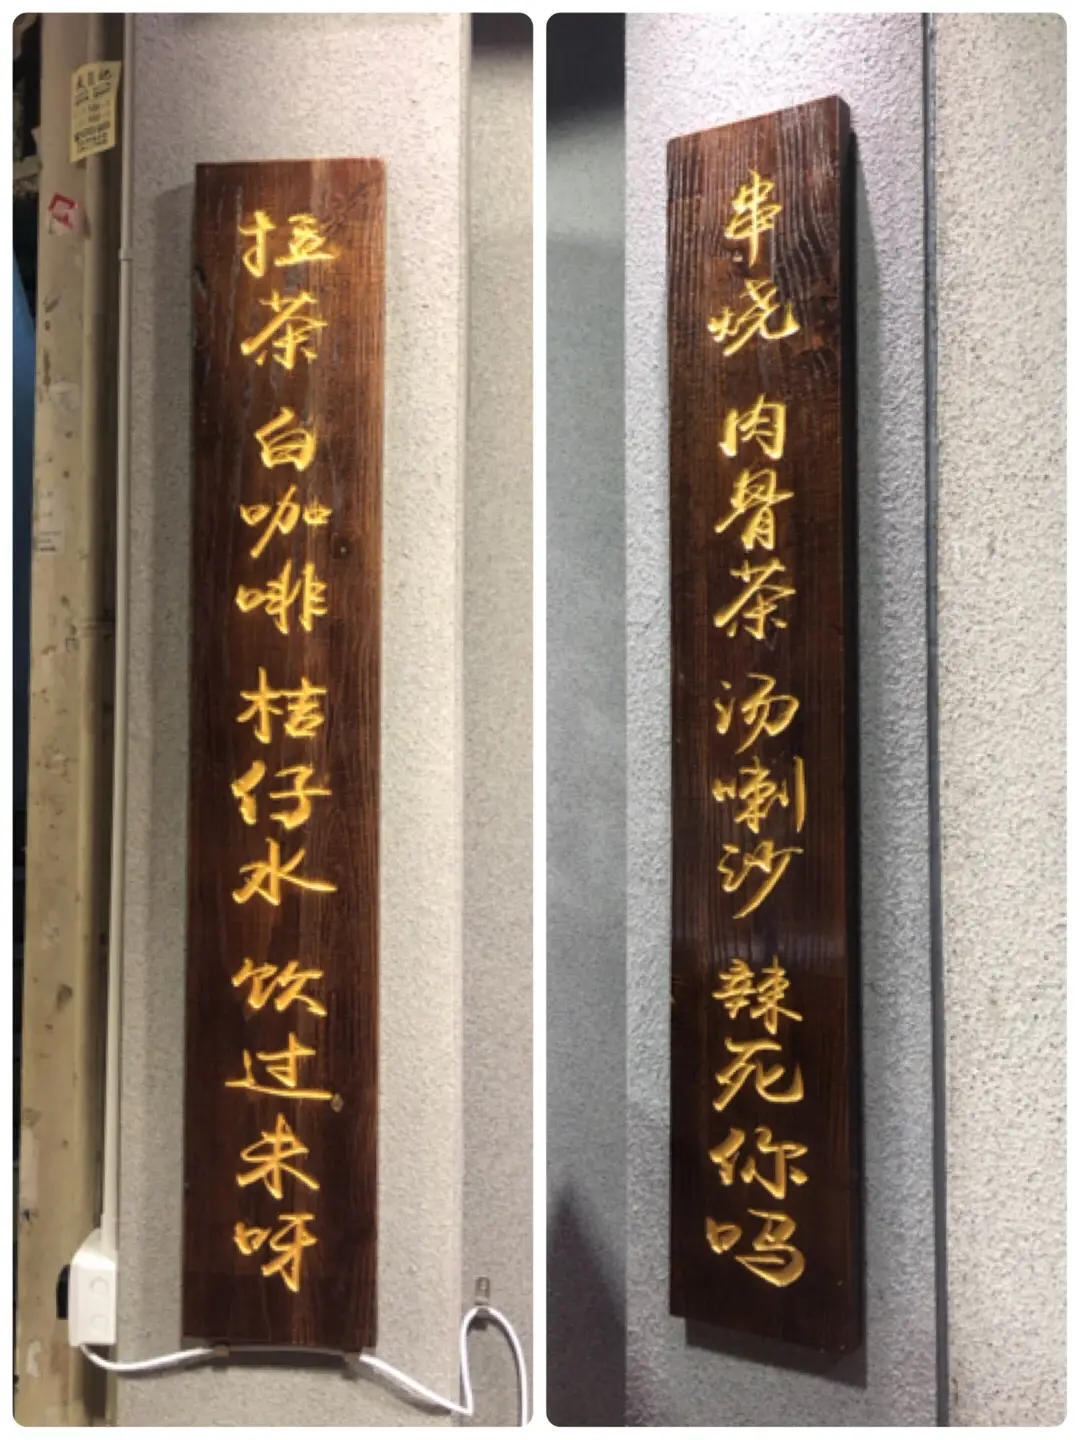 拉茶 白咖啡 桔仔水 饮过未呀
串烧 肉骨茶 汤喇沙 辣死你吗